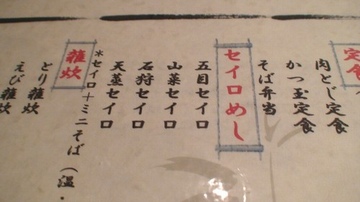 定食
肉とじ定食
かつ玉定食
そば弁当
セイロめし
五目セイロ
山菜セイロ
石狩セイロ
天蒸セイロ
*セイロ+ミニそば(温・
雑炊
とり雑炊
えび雑炊